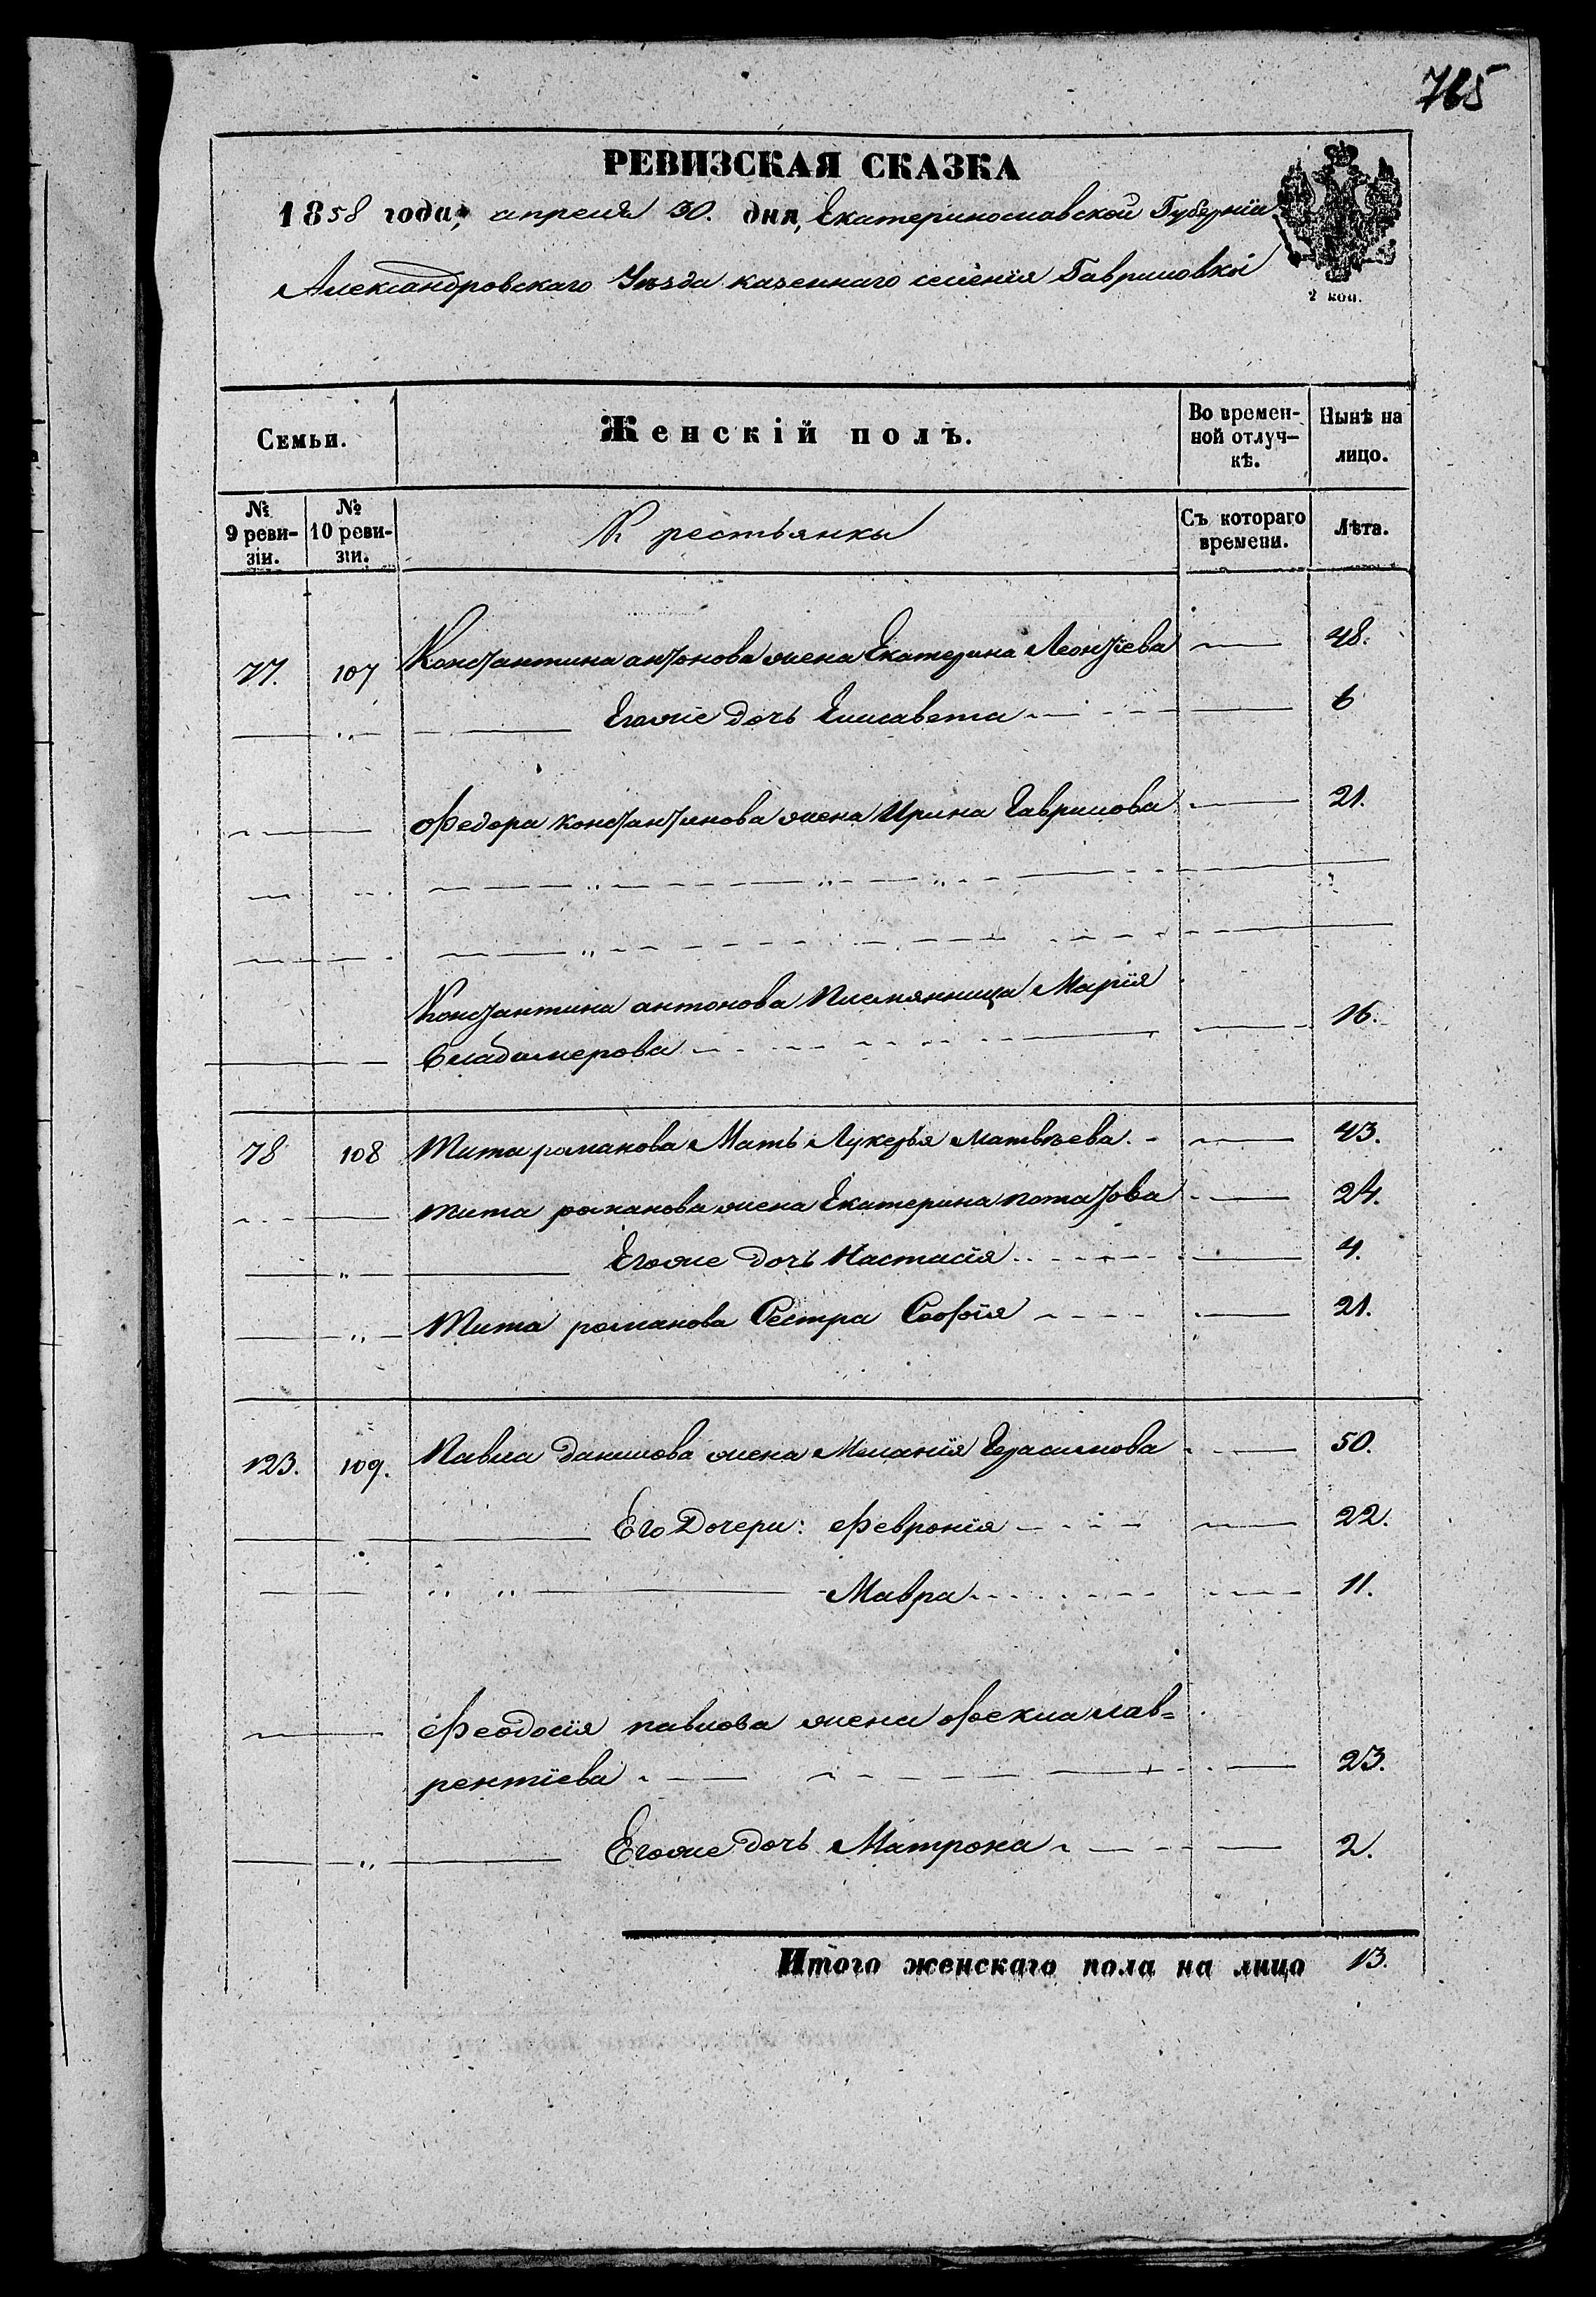 765
РЕВИЗСКАЯ СКАЗКА
1858 года, апреля 30. дня, Екатеринославской Губерніи
Александровскаго Уѣзда казеннаго селенія Гавриловки
2 коп.
Семьи. Женскій полъ. Во времен-ной отлуч-кѣ. Нынѣ на лицо.
№ 9 реви-зіи. № 10 реви-зіи. Крестьянки Съ котораго времени. Лѣта.
77. 107 Константина антонова жена Екатерина Леонтіева 48.
Егоже дочь Елисавета 6
Федора константинова жена Ирина Гаврилова 21.
Константина антонова Племянница Марія
Владимерова 16.
78 108 Тита романова Мать Лукерья Матвѣева. 43.
тита романова жена Екатерина потапова 24.
Егоже дочь Настасія 4.
Тита романова Сестра Софія 21.
123. 109. Павла данилова жена Меланія Герасимова 50.
Его Дочери: Февронія 22.
Мавра 11.
Феодосія павлова жена Фекла лав=
рентіева 23.
Егоже дочь Матрона 2.
Итого женскаго пола на лицо 13.